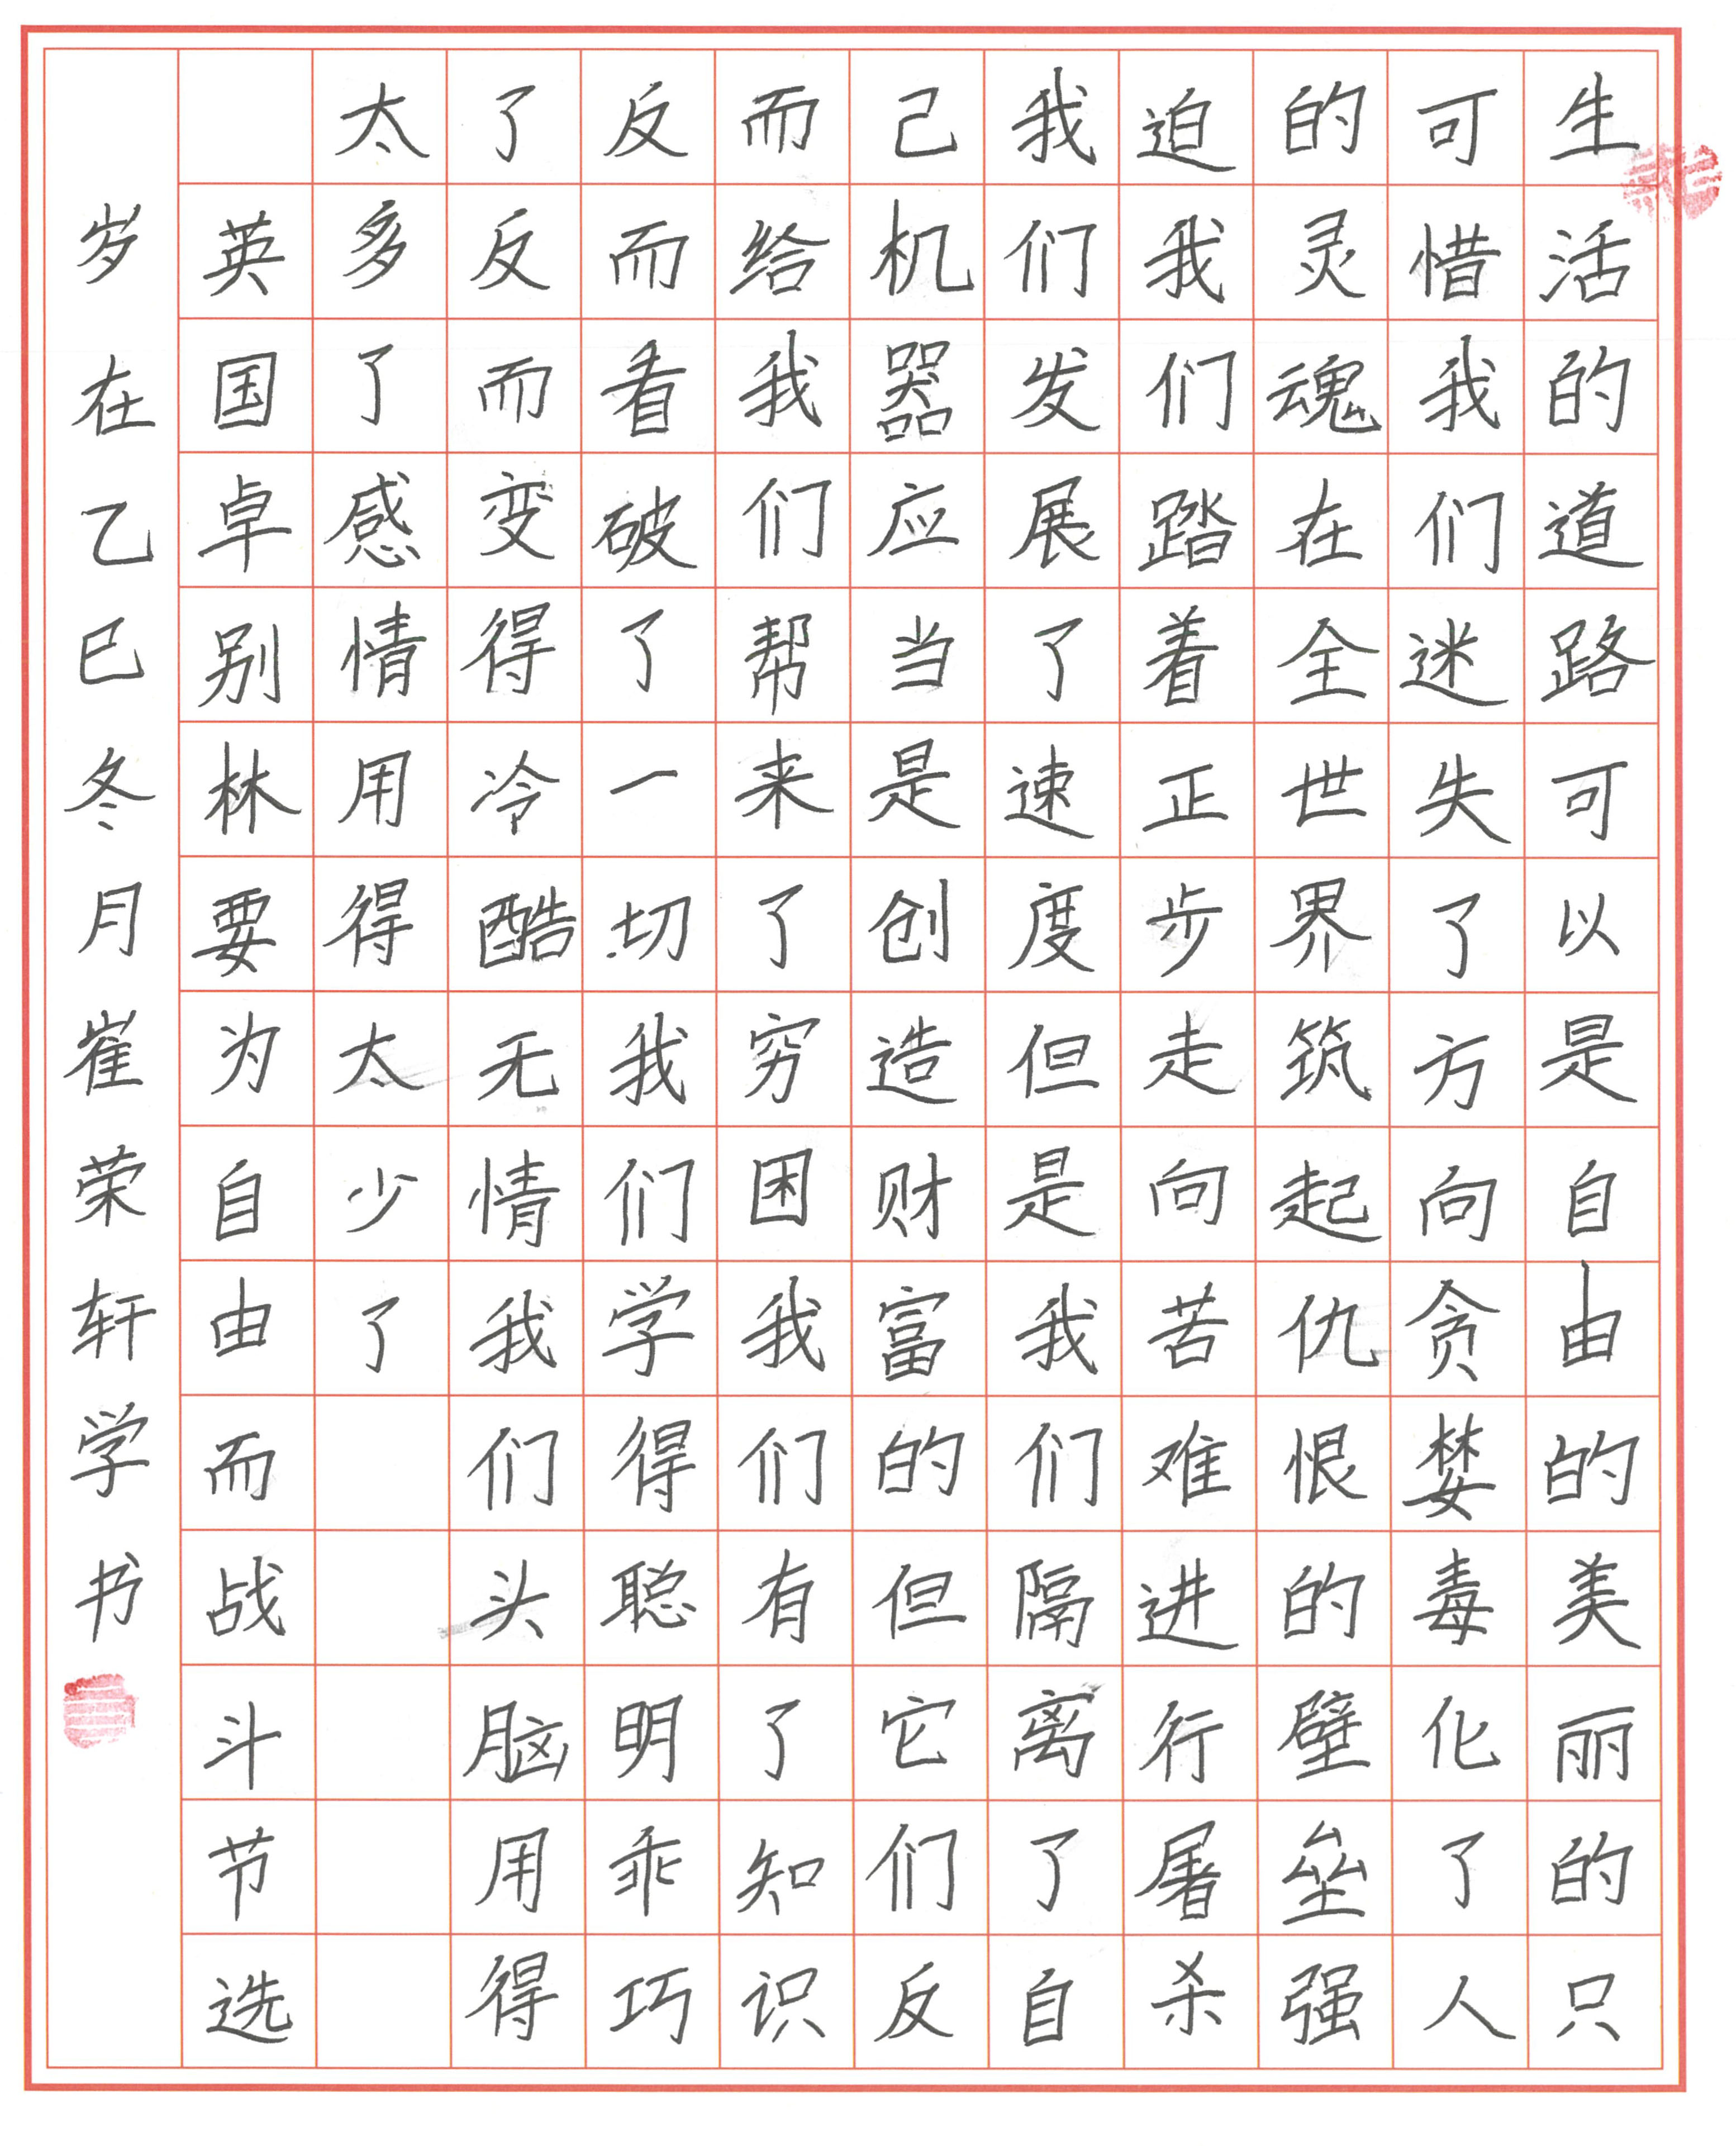 生活的道路可以是自由的美丽的只
可惜我们迷失了方向贪婪毒化了人
的灵魂在全世界筑起仇恨的壁垒强
迫我们踏着正步走向苦难进行屠杀
我们发展了速度但是我们隔离了自
己机器应当是创造财富的但它们反
而给我们帮来了穷困我们有了知识
反而看破了一切我们学得聪明乖巧
了反而变得冷酷无情我们头脑用得
太多了感情用得太少了
英国卓别林要为自由而战斗节选
岁在乙巳冬月崔荣轩学书